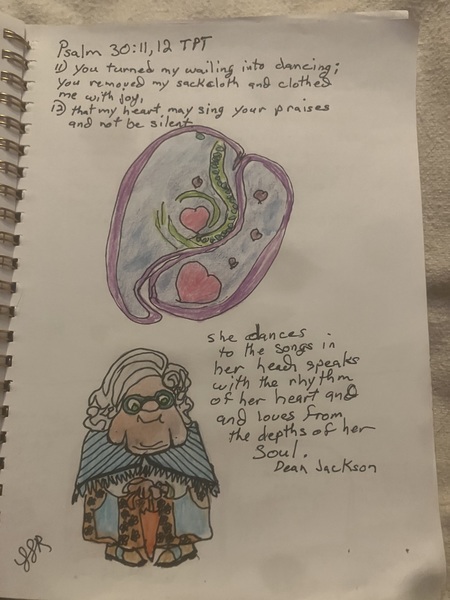 Psalm 30:11,12 TPT
11) you turned my wailing into dancing;
you removed my sackcloth and clothed
me with joy,
12) that my heart may sing your praises
and not be silent
she dances
to the songs in
her head, speaks
with the rhythm
of her heart and
and loves from
the depths of her
Soul.
Dean Jackson